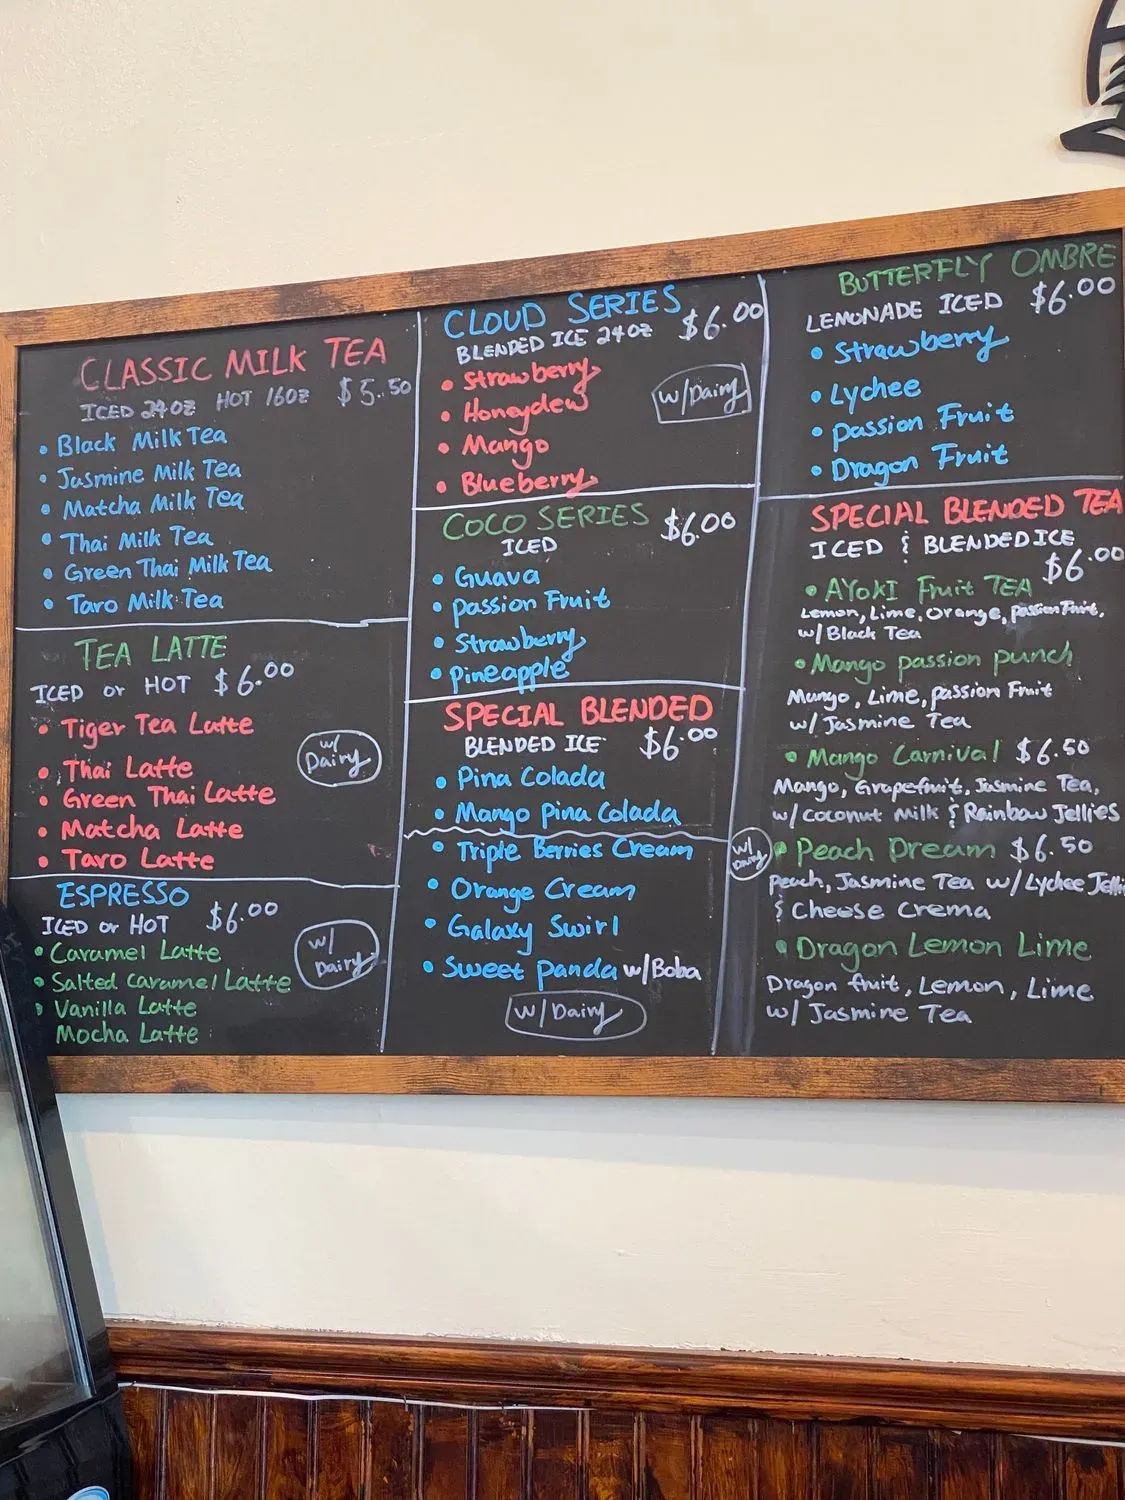 CLASSIC MILK TEA
ICED 24oz HOT 16oz $5.50
• Black Milk Tea
• Jasmine Milk Tea
• Matcha Milk Tea
• Thai Milk Tea
• Green Thai Milk Tea
• Taro Milk Tea
TEA LATTE
ICED or HOT $6.00
• Tiger Tea Latte
w/ Dairy
• Thai Latte
• Green Thai Latte
• Matcha Latte
• Taro Latte
ESPRESSO
ICED or HOT $6.00
• Caramel Latte
w/ Dairy
• Salted Caramel Latte
• Vanilla Latte
Mocha Latte
CLOUD SERIES
BLENDED ICE 24oz $6.00
• Strawberry
w/Dairy
• Honeydew
• Mango
• Blueberry
COCO SERIES $6.00
ICED
• Guava
• Passion Fruit
• Strawberry
• Pineapple
SPECIAL BLENDED
BLENDED ICE $6.00
• Pina Colada
• Mango Pina Colada
• Triple Berries Cream
• Orange Cream
• Galaxy Swirl
• Sweet Panda w/Boba
w/Dairy
BUTTERFLY OMBRE
LEMONADE ICED $6.00
• Strawberry
• Lychee
• Passion Fruit
• Dragon Fruit
SPECIAL BLENDED TEA
ICED & BLENDED ICE
$6.00
• AYOKI Fruit TEA
Lemon, Lime, Orange, Passion Fruit,
w/ Black Tea
• Mango passion punch
Mango, Lime, passion Fruit
w/ Jasmine Tea
• Mango Carnival $6.50
Mango, Grapefruit, Jasmine Tea,
w/ coconut milk & Rainbow Jellies
w/ Dairy
• Peach Dream $6.50
Peach, Jasmine Tea w/ Lychee Jelli
& Cheese Crema
• Dragon Lemon Lime
Dragon fruit, Lemon, Lime
w/ Jasmine Tea